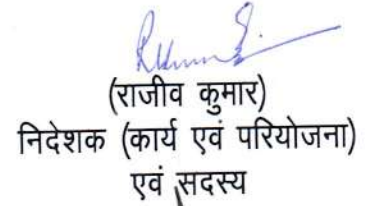 (राजीव कुमार)
निदेशक (कार्य एवं परियोजना)
एवं सदस्य